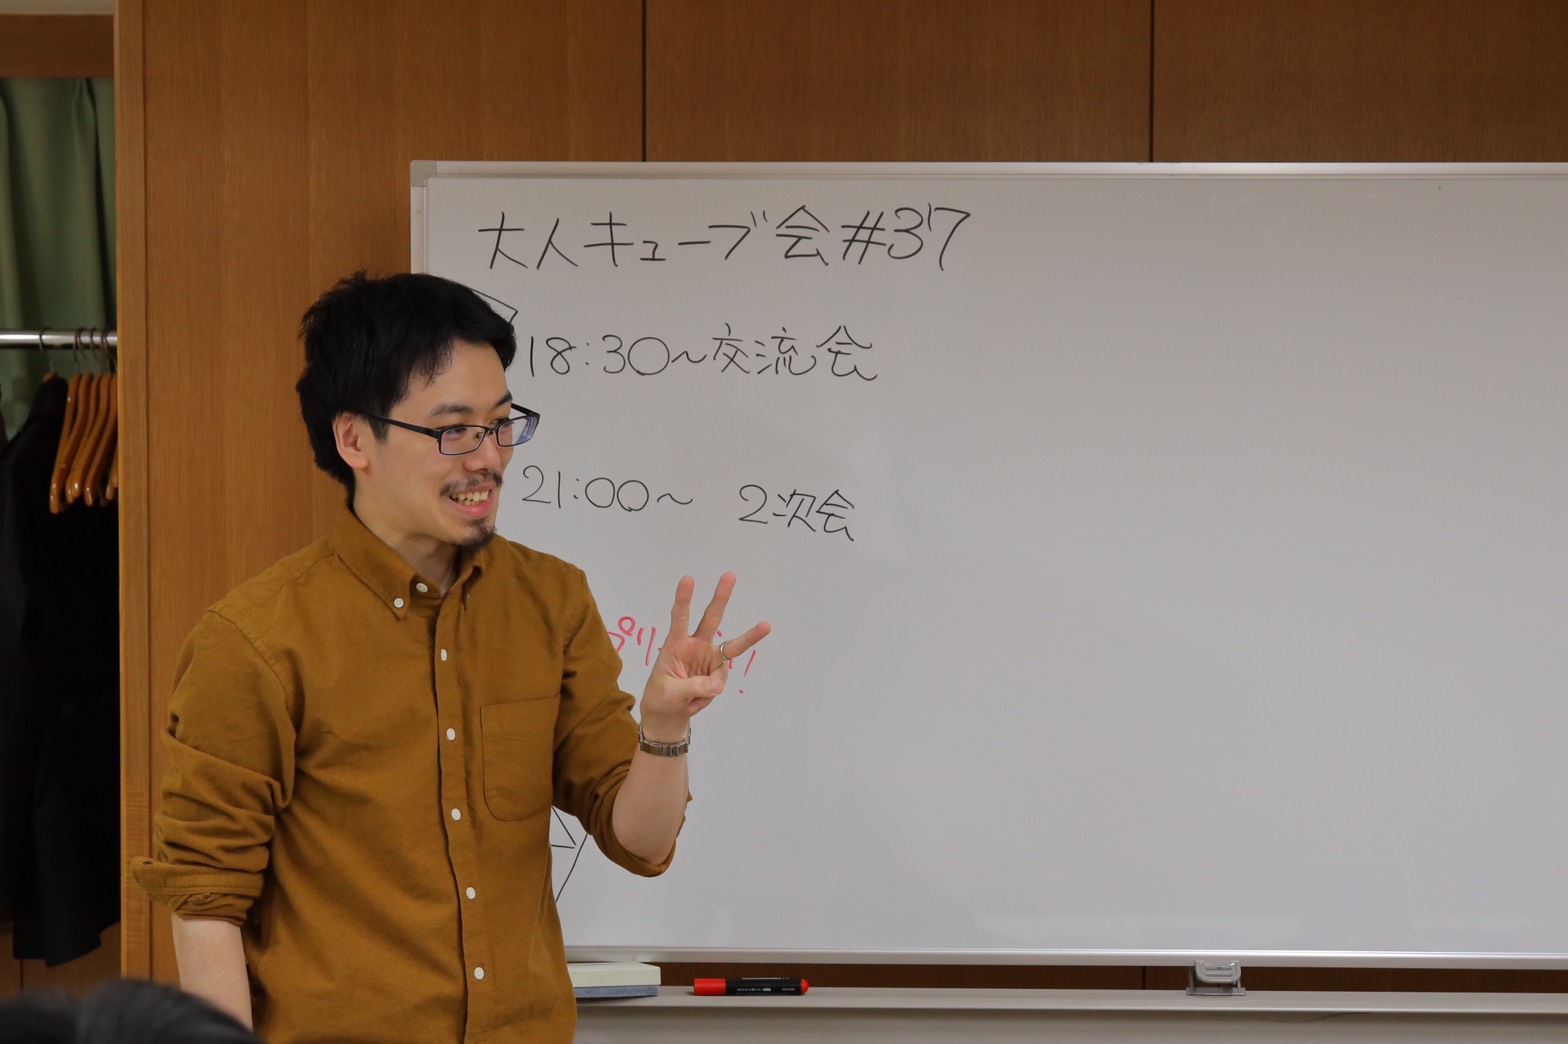 大人キューブ会#37
18:30~交流会
21:00~ 2次会